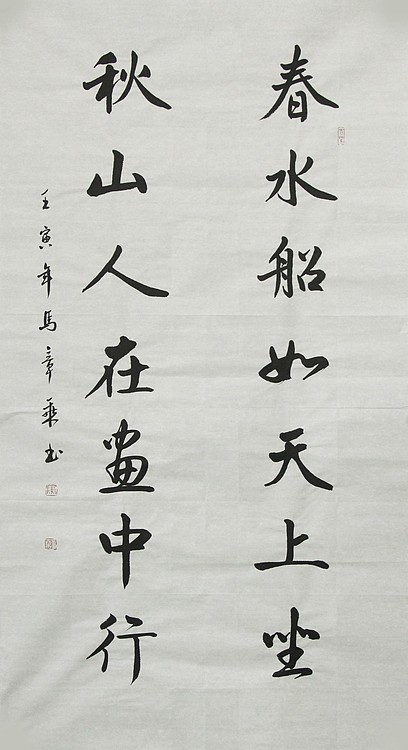 春水船如天上坐
秋山人在畫中行
壬寅年馬章乘书